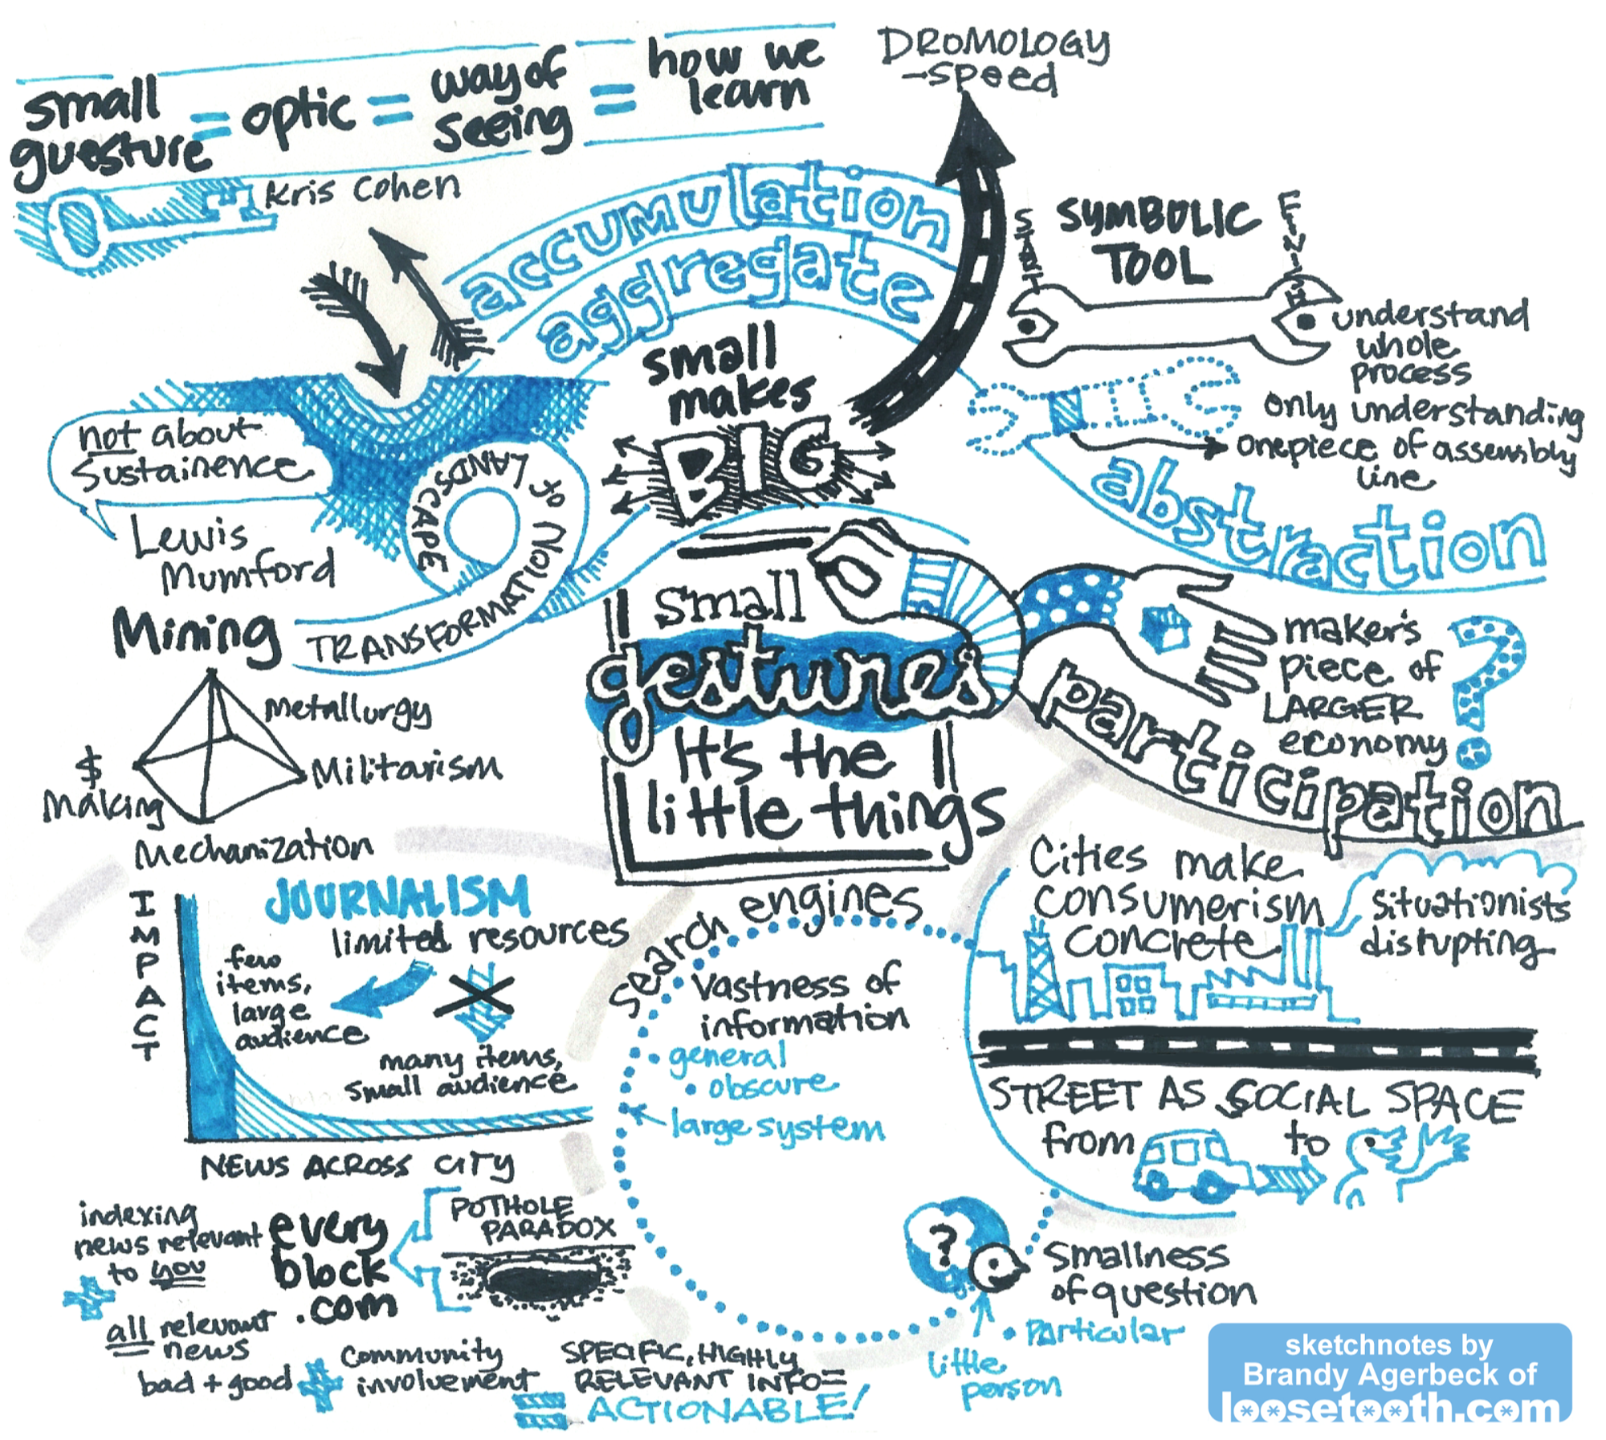 small
guesture = optic = way of
seeing = how we
learn
Kris Cohen
DROMOLOGY
→speed
accumulation
aggregate
small
makes
BIG
START
SYMBOLIC
TOOL
FINISH
understand
whole
process
only understanding
one piece of assembly
line
abstraction
not about
Sustainence
Lewis
Mumford
TRANSFORMATION of LANDSCAPE
Mining
Metallurgy
Militarism
$
Making
Mechanization
small
gestures
It's the
little things
maker's
piece of
LARGER
economy
?
participation
IMPACT
JOURNALISM
limited resources
few
items,
large
audience
many items,
small audience
NEWS ACROSS CITY
search engines
Vastness of
information
• general
• obscure
large system
Cities make
consumerism
concrete
Situationists
disrupting
STREET AS SOCIAL SPACE
from
to
indexing
news relevant
to you
+
all relevant
news
bad + good
every
block
.com
POTHOLE
PARADOX
+ community
involvement
SPECIFIC, HIGHLY
RELEVANT INFO=
= ACTIONABLE!
?
Smallness
of question
• Particular
little
person
sketchnotes by
Brandy Agerbeck of
loosetooth.com